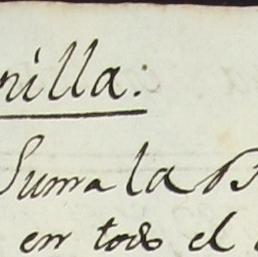 nilla:
Suma la B
en todo el